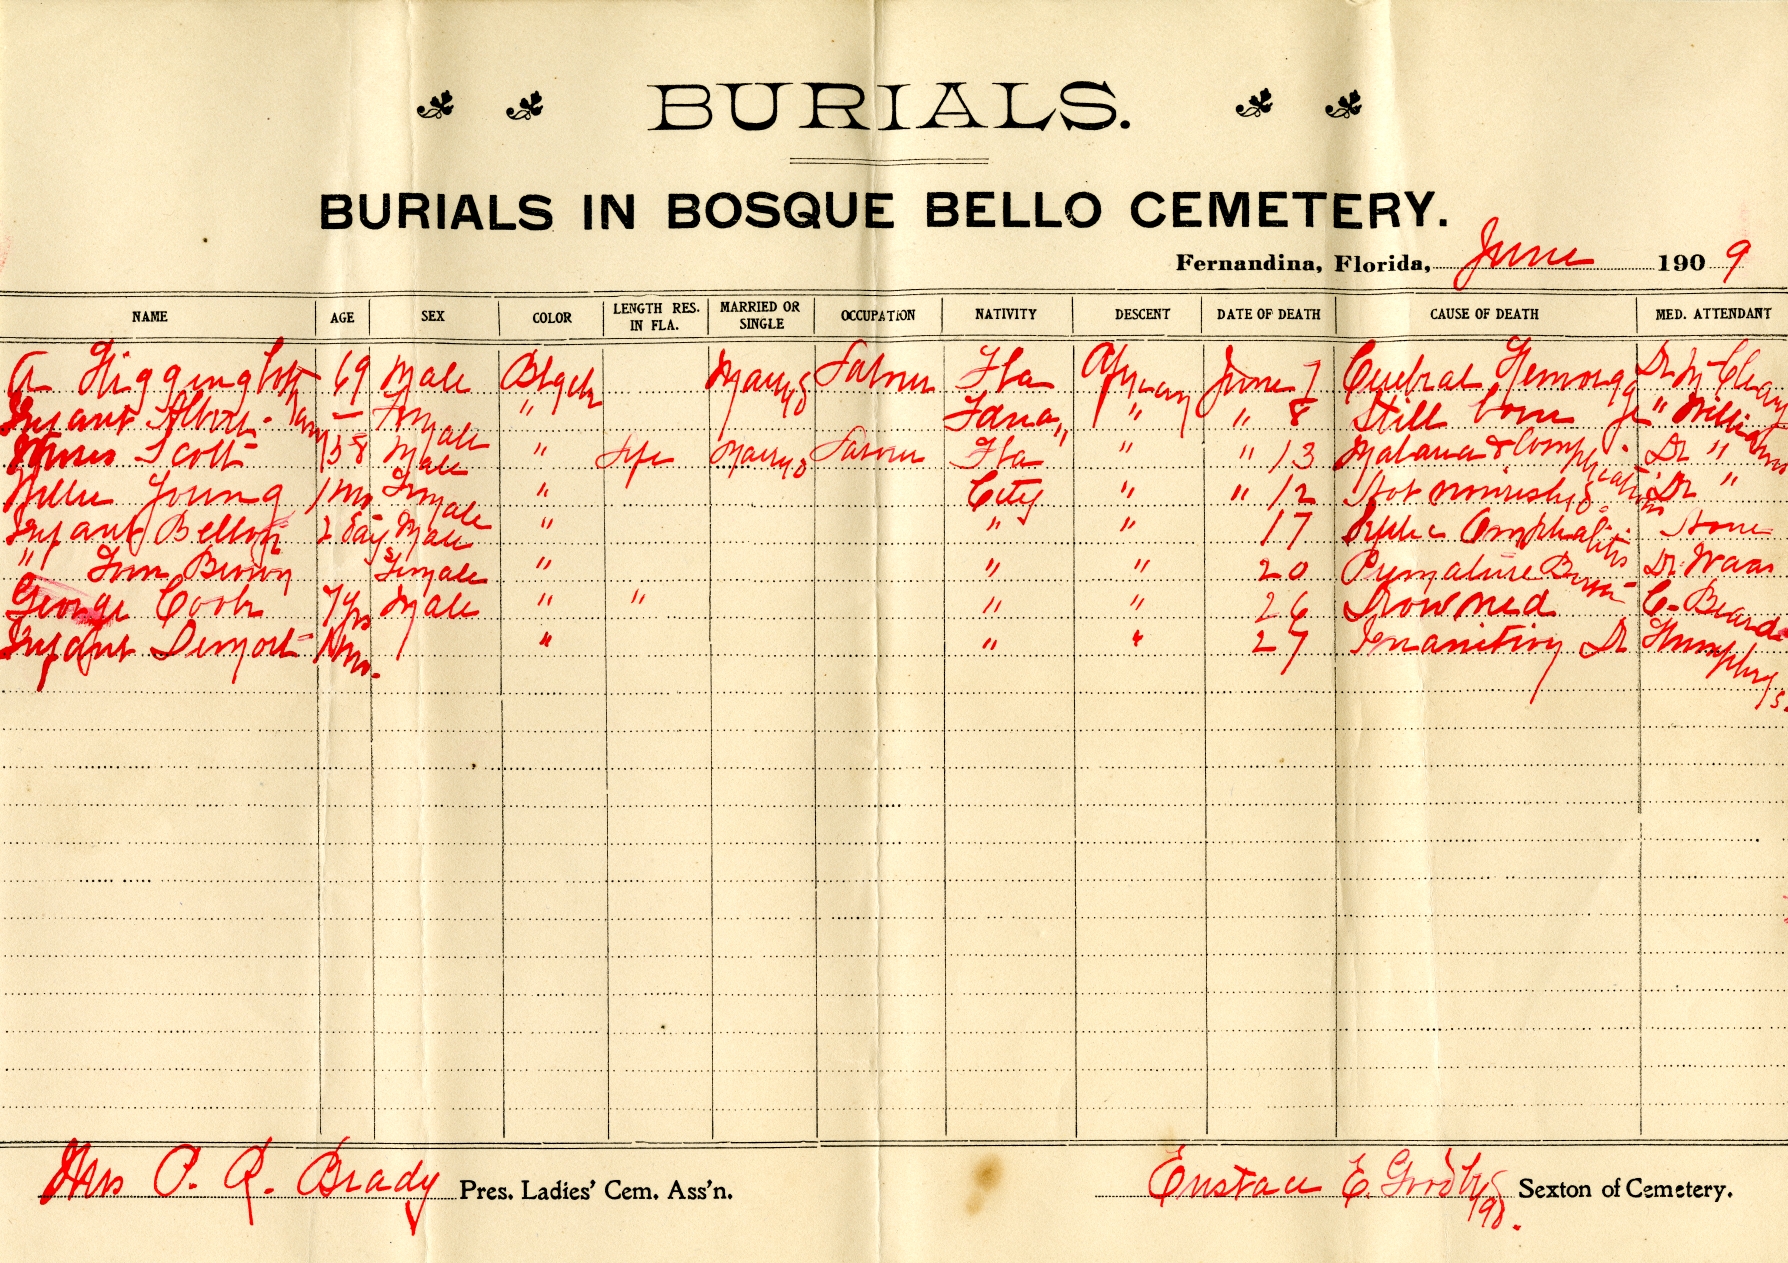 BURIALS.
BURIALS IN BOSQUE BELLO CEMETERY.
Fernandina, Florida, June 1909
NAME AGE SEX COLOR LENGTH RES. IN FLA. MARRIED OR SINGLE OCCUPATION NATIVITY DESCENT DATE OF DEATH CAUSE OF DEATH MED. ATTENDANT
A Higginboth 69 Male Black Married Laborer Fla African June 7 Cerebral Hemorage Dr
Infant Albert - Female " Fdna " " 8 Still born " Williams
Scott 58 Male " life Married Laborer Fla " " 13 Malaria & Complications Dr "
Willie Young 1 mo Female " City " " 12 Not nourished Dr "
Infant Bellott 2 day Male " " " 17 Omphalitis None
" Brown Female " " " 20 Premature Birth Dr Waas
George Cook 7 yrs Male " " " " 26 Drowned C- Beard
Infant " " " 27 Inanition Dr Humphreys.
Mrs P. R. Brady Pres. Ladies' Cem. Ass'n.
Eustace E. Sexton of Cemetery.